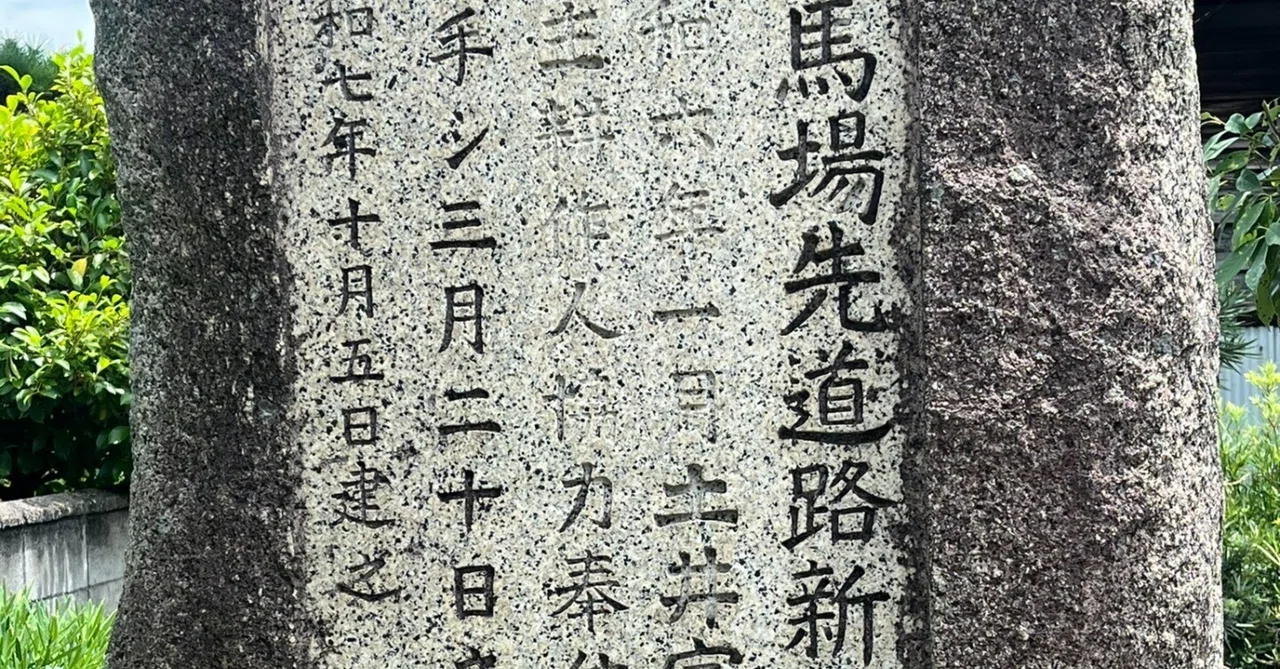 馬場先道路新
和六年一日土井
主耕作人協力奉
手シ三月二十日
和七年十月五日建之